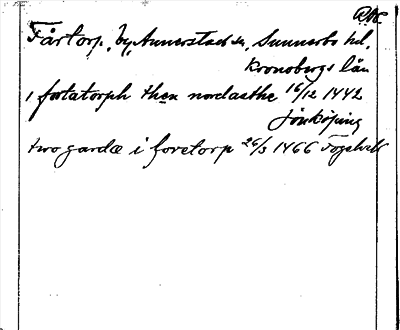 RAP
Fårtorp, by, Annerstad sn, Sunnerbo hd,
Kronobergs län
i fortatorph then nordasthe 16/12 1442
Jönköping
two gardæ i foretorp 26/3 1466 Fogelvik